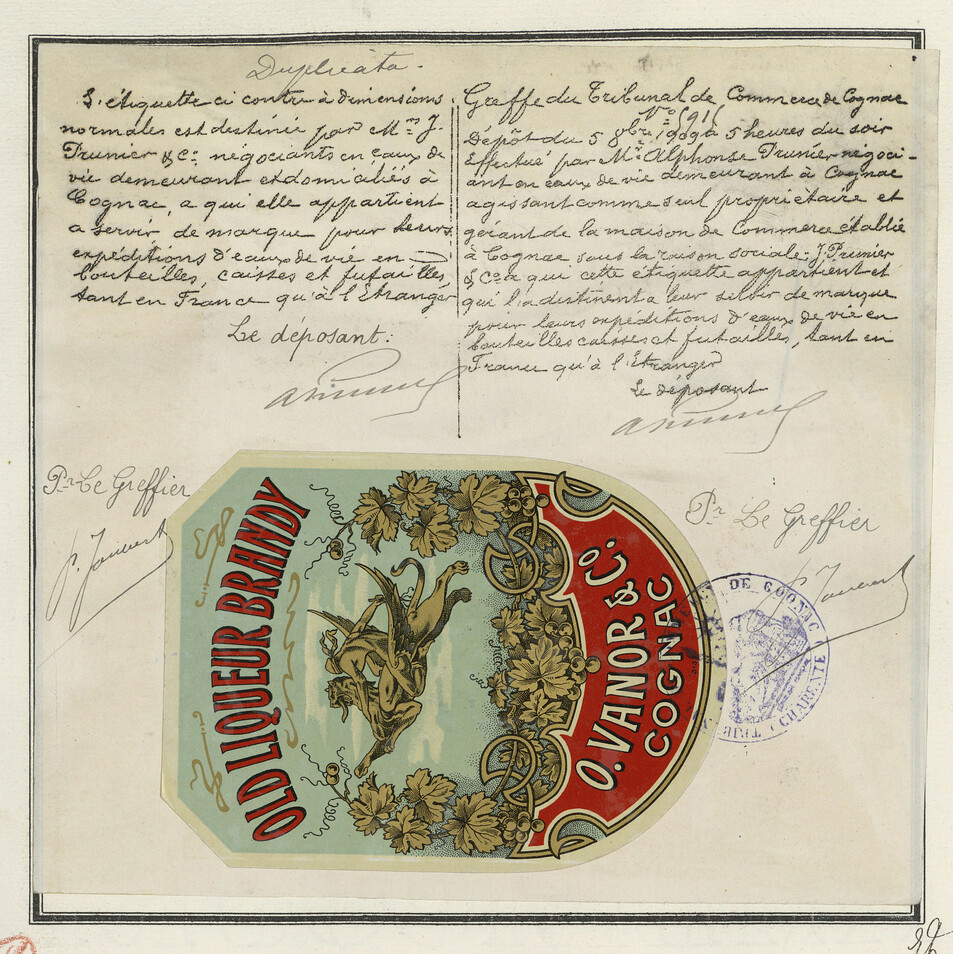 Duplicata.
L'étiquette ci contre à dimensions
normales est destinée par Mrs J.
Prunier & Co. négociants en eaux de
vie demeurant et domiciliés à
Cognac, a qui elle appartient
a servir de marque pour leurs
expéditions d'eaux de vie en
bouteilles, caisses et futailles
tant en France qu'à l'Etranger
Le déposant:
Pr Le Greffier
Greffe du Tribunal de Commerce de Cognac
No 591
Dépôt du 5 8bre 1909 à 5 heures du soir
Effectué par Mr Alphonse Prunier négoci-
ant en eaux de vie demeurant à Cognac
agissant comme seul propriétaire et
gérant de la maison de Commerce établie
à Cognac sous la raison sociale: J. Prunier
& Co a qui cette étiquette appartient et
qui la destinent a leur servir de marque
pour leurs expéditions d'eaux de vie en
bouteilles caisses et futailles, tant en
France qu'à l'Etranger
Le déposant
Pr Le Greffier
O. VANOR & Co.
COGNAC
OLD LIQUEUR BRANDY
DE COGNAC
CHARENTE